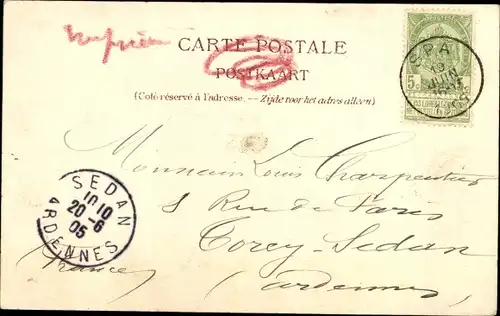 Imprimé
CARTE POSTALE
POSTKAART
(Coté réservé à l'adresse. — Zijde voor het adres alleen)
SPA
JUIN
5 c
SEDAN
10 10
20-6
05
ARDENNES
Monsieur Louis Charpentier
8 Rue de Paris
Torcy-Sedan
(France) (Ardennes)